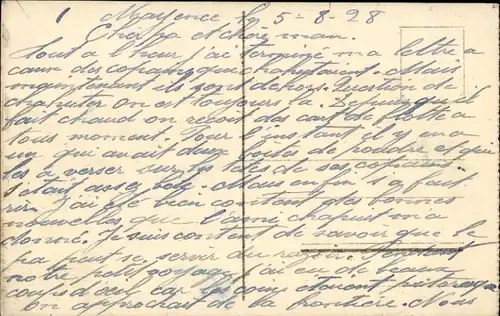 1 Mayence le 5-8-28
Cher pa et chere man.
Tout a l'heur j'ai terminé ma lettre a
caus des copains que chahutaient. Mais
maintenant ils sons dehors. Question de
chahuter on est toujours la. Depuis qu'il
fait chaud on recoit des cart de flotte a
tous moment. Pour l'instant il y en a
un qui avait deux boites de poudre et qui
les a verser sur les têtes de ses copains.
S'etait assez beau. Mais enfin s'a fait
rire. J'ai été bien content des bonnes
nouvelles que l'ami chapuis m'a
donné. Je suis content de savoir que le
pa peut se servir du rasoir. Pendant
notre petit voyage j'ai eu de beaux
coups d'oeil car les coins etaient
on approchait de la frontière. Nous